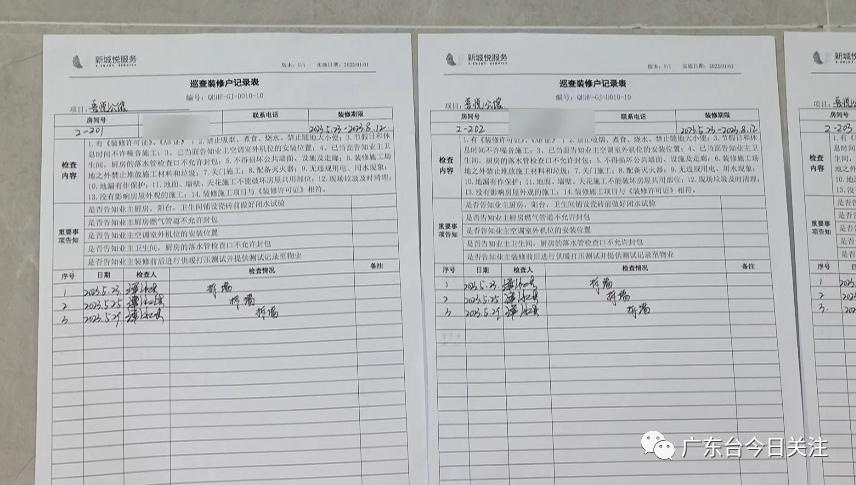 新城悦服务
版本：1/1 实施日期：2022/01/01
巡查装修户记录表
编号：QEHF-GJ-D010-10
项目：
房间号 联系电话 装修期限
2-201 2023.5.23-2023.8.12
检查内容
息时间不许噪音施工；3、已当面告知业主空调室外机位的安装位置；4、已当面告知业主卫
生间、厨房的落水管检查口不允许封包；5.不得损坏公共墙面、设施及走廊；6.装修施工场
地之外禁止堆放施工材料和垃圾；7.关门施工；8.配备灭火器；9.无违规用电、用水现象；
10.地漏有作保护；11.地面、墙壁、天花施工不能破坏房屋共用部位；12.现场垃圾及时清理；
13.没有影响房屋外观的施工；14.装修施工项目与《装修许可证》相符。
重要事项告知
是否告知业主厨房、阳台、卫生间铺设瓷砖前做好闭水试验
是否告知业主厨房燃气管道不允许封包
是否告知业主空调室外机位的安装位置
是否告知业主卫生间、厨房的落水管检查口不允许封包
是否告知业主装修前后进行供暖打压测试并提供测试记录至物业
序号 日期 检查人 检查情况 备注
1 2023.5.23 拆墙
2 2023.5.25 拆墙
3 2023.5.29 拆墙
新城悦服务
版本：1/1 实施日期：2022/01/01
巡查装修户记录表
编号：QEHF-GJ-D010-10
项目：
房间号 联系电话 装修期限
2-202 2023.5.23-2023.8.12
检查内容
息时间不许噪音施工；3、已当面告知业主空调室外机位的安装位置；4、已当面告知业主卫
生间、厨房的落水管检查口不允许封包；5.不得损坏公共墙面、设施及走廊；6.装修施工场
地之外禁止堆放施工材料和垃圾；7.关门施工；8.配备灭火器；9.无违规用电、用水现象；
10.地漏有作保护；11.地面、墙壁、天花施工不能破坏房屋共用部位；12.现场垃圾及时清理；
13.没有影响房屋外观的施工；14.装修施工项目与《装修许可证》相符。
重要事项告知
是否告知业主厨房、阳台、卫生间铺设瓷砖前做好闭水试验
是否告知业主厨房燃气管道不允许封包
是否告知业主空调室外机位的安装位置
是否告知业主卫生间、厨房的落水管检查口不允许封包
是否告知业主装修前后进行供暖打压测试并提供测试记录至物业
序号 日期 检查人 检查情况 备注
1 2023.5.23 拆墙
2 2023.5.25 拆墙
3 2023.5.29 拆墙
项目：
2-203
检查内容
重要事项告知
序号
1
2
3
广东台今日关注